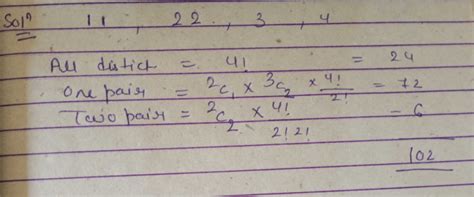 Solⁿ 11 , 22 , 3 , 4
All distict = 4! = 24
One pair = ²C₁ × ³C₂ × 4!/2! = 72
Two pair = ²C₂ × 4!/2!2! = 6
102